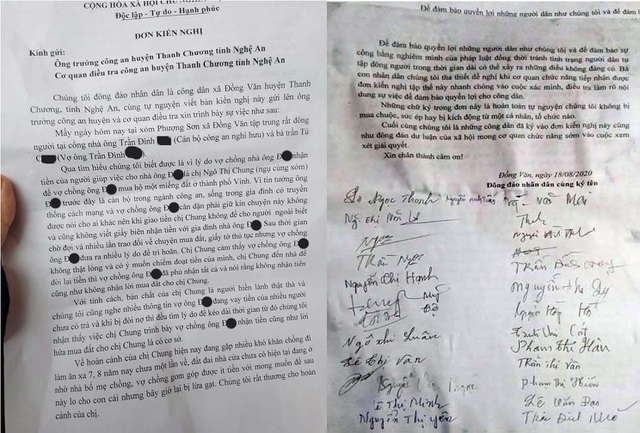 CỘNG HÒA XÃ HỘI CHỦ
Độc lập - Tự do - Hạnh phúc
ĐƠN KIẾN NGHỊ
Kính gửi:
Ông trưởng công an huyện Thanh Chương tỉnh Nghệ An
Cơ quan điều tra công an huyện Thanh Chương tỉnh Nghệ An
Chúng tôi đông đảo nhân dân là công dân xã Đồng Văn huyện Thanh
Chương, tỉnh Nghệ An, cùng tự nguyện viết bản kiến nghị này gửi lên ông
trưởng công an huyện và cơ quan điều tra xin trình bày sự việc như sau:
Mấy ngày hôm nay tại xóm Phượng Sơn xã Đồng Văn tập trung rất đông
người tại cổng nhà ông Trần Đình (Cán bộ công an nghỉ hưu) và bà trần Tú
C (Vợ ông Trần Đình
Qua tìm hiểu chúng tôi biết được là vì lý do vợ chồng nhà ông Đ nhận
tiền của người giúp việc cho nhà ông Đ là chị Ngô Thị Chung (ngụ cùng xóm)
để vợ chồng ông Đ mua hộ một miếng đất ở thành phố Vinh. Vì tin tưởng ông
Đ trước đây là cán bộ trong ngành công an, sống trong gia đình có truyền
thống cách mạng và vợ chồng ông Đ căn dặn phải giữ kín chuyện này không
được nói cho ai khác nên khi giao tiền chị Chung không để cho người ngoài biết
và cũng không viết giấy biên nhận tiền với gia đình nhà ông Đ Sau thời gian
chờ đợi và nhiều lần trao đổi về chuyện mua đất, giấy tờ thủ tục nhưng vợ chồng
ông Đ đưa ra nhiều lý do để trì hoãn. Chị Chung cảm thấy vợ chồng ông Đ
không thật lòng và có ý muốn chiếm đoạt tiền của mình, chị Chung đến nhà để
đòi lại tiền thì vợ chồng ông Đ đã phủ nhận tất cả và nói rằng không nhận tiền
cũng như không nhận lời mua đất cho chị Chung.
Với tính cách, bản chất của chị Chung là người hiền lành thật thà và
chúng tôi cũng nghe nhiều thông tin vợ ông Đ đang vay tiền của nhiều người
chưa có trả và khi bị đòi nợ thì đều tìm lý do để kéo dài thời gian từ đó chúng tôi
nhận thấy việc chị Chung trình bày vợ chồng ông Đ nhận tiền cũng như lời
hứa mua đất cho chị Chung là có cơ sở.
Về hoàn cảnh của chị Chung hiện nay đang gặp nhiều khó khăn chồng đi
làm ăn xa 7, 8 năm nay chưa một lần về, đất đai nhà cửa chưa có hiện tại đang ở
nhờ nhà bố mẹ chồng, vợ chồng gom góp được ít tiền với mong muốn để sau
này lo cho con cái nhưng bây giờ lại bị lừa gạt. Chúng tôi rất thương cho hoàn
cảnh của chị.
Để đảm bảo quyền lợi những người dân như chúng tôi và để đảm
Để đảm bảo quyền lợi những người dân như chúng tôi và để đảm bảo sự
công bằng nghiêm minh của pháp luật đồng thời tránh tình trạng người dân tụ
tập đông người trong thời gian dài có thể xảy ra những điều không đáng có. Bà
con nhân dân chúng tôi tha thiết đề nghị cơ quan chức năng tiếp nhận được
đơn kiến nghị tập thể này nhanh chóng vào cuộc xác minh, điều tra làm rõ nội
dung sự việc để đảm bảo quyền lợi cho công dân.
Những chữ ký trong đơn này là hoàn toàn tự nguyện chúng tôi không bị
mua chuộc, sức ép hay bị kích động từ một cá nhân, tổ chức nào.
Cuối cùng chúng tôi là những công dân đã ký vào đơn kiến nghị này cũng
như đông đảo dư luận của xã hội mong cơ quan chức năng sớm vào cuộc xem
xét giải quyết.
Xin chân thành cảm ơn!
Đồng Văn, ngày 18/08/2020
Đông đảo nhân dân cùng ký tên
Ngọc Thanh
Nguyễn Thị Hạnh
Ngô Thị Xuân
Lê Thị Vân
Phạm Thị Hân
Trần Thị Vân
Phạm Thị Hiền
Lê Văn Đạo
Lê Thị Minh
Nguyễn Thị Yến
Trần Đình